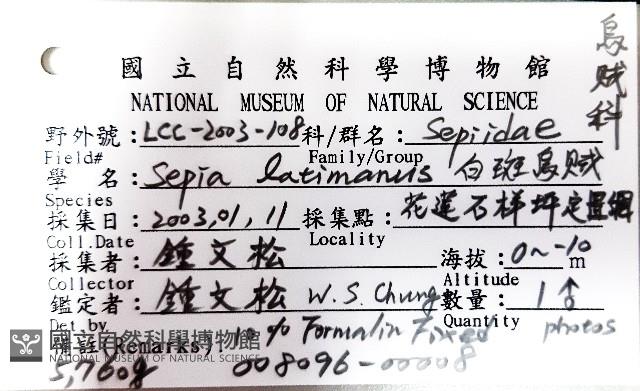 烏賊科
國立自然科學博物館
NATIONAL MUSEUM OF NATURAL SCIENCE
野外號：LCC-2003-108 科/群名：Sepiidae
Field# Family/Group
學 名：Sepia latimanus 白斑烏賊
Species
採集日：2003,01,11 採集點：花蓮石梯坪定置網
Coll.Date Locality
採集者：鍾文松 海拔：0~-10 m
Collector Altitude
鑑定者：鍾文松 W.S. Chung 數量：1♂
Det.by Quantity
備註 Remarks 10% Formalin Fixed photos
國立自然科學博物館
NATIONAL MUSEUM OF NATURAL SCIENCE
5,760g 008096-00008